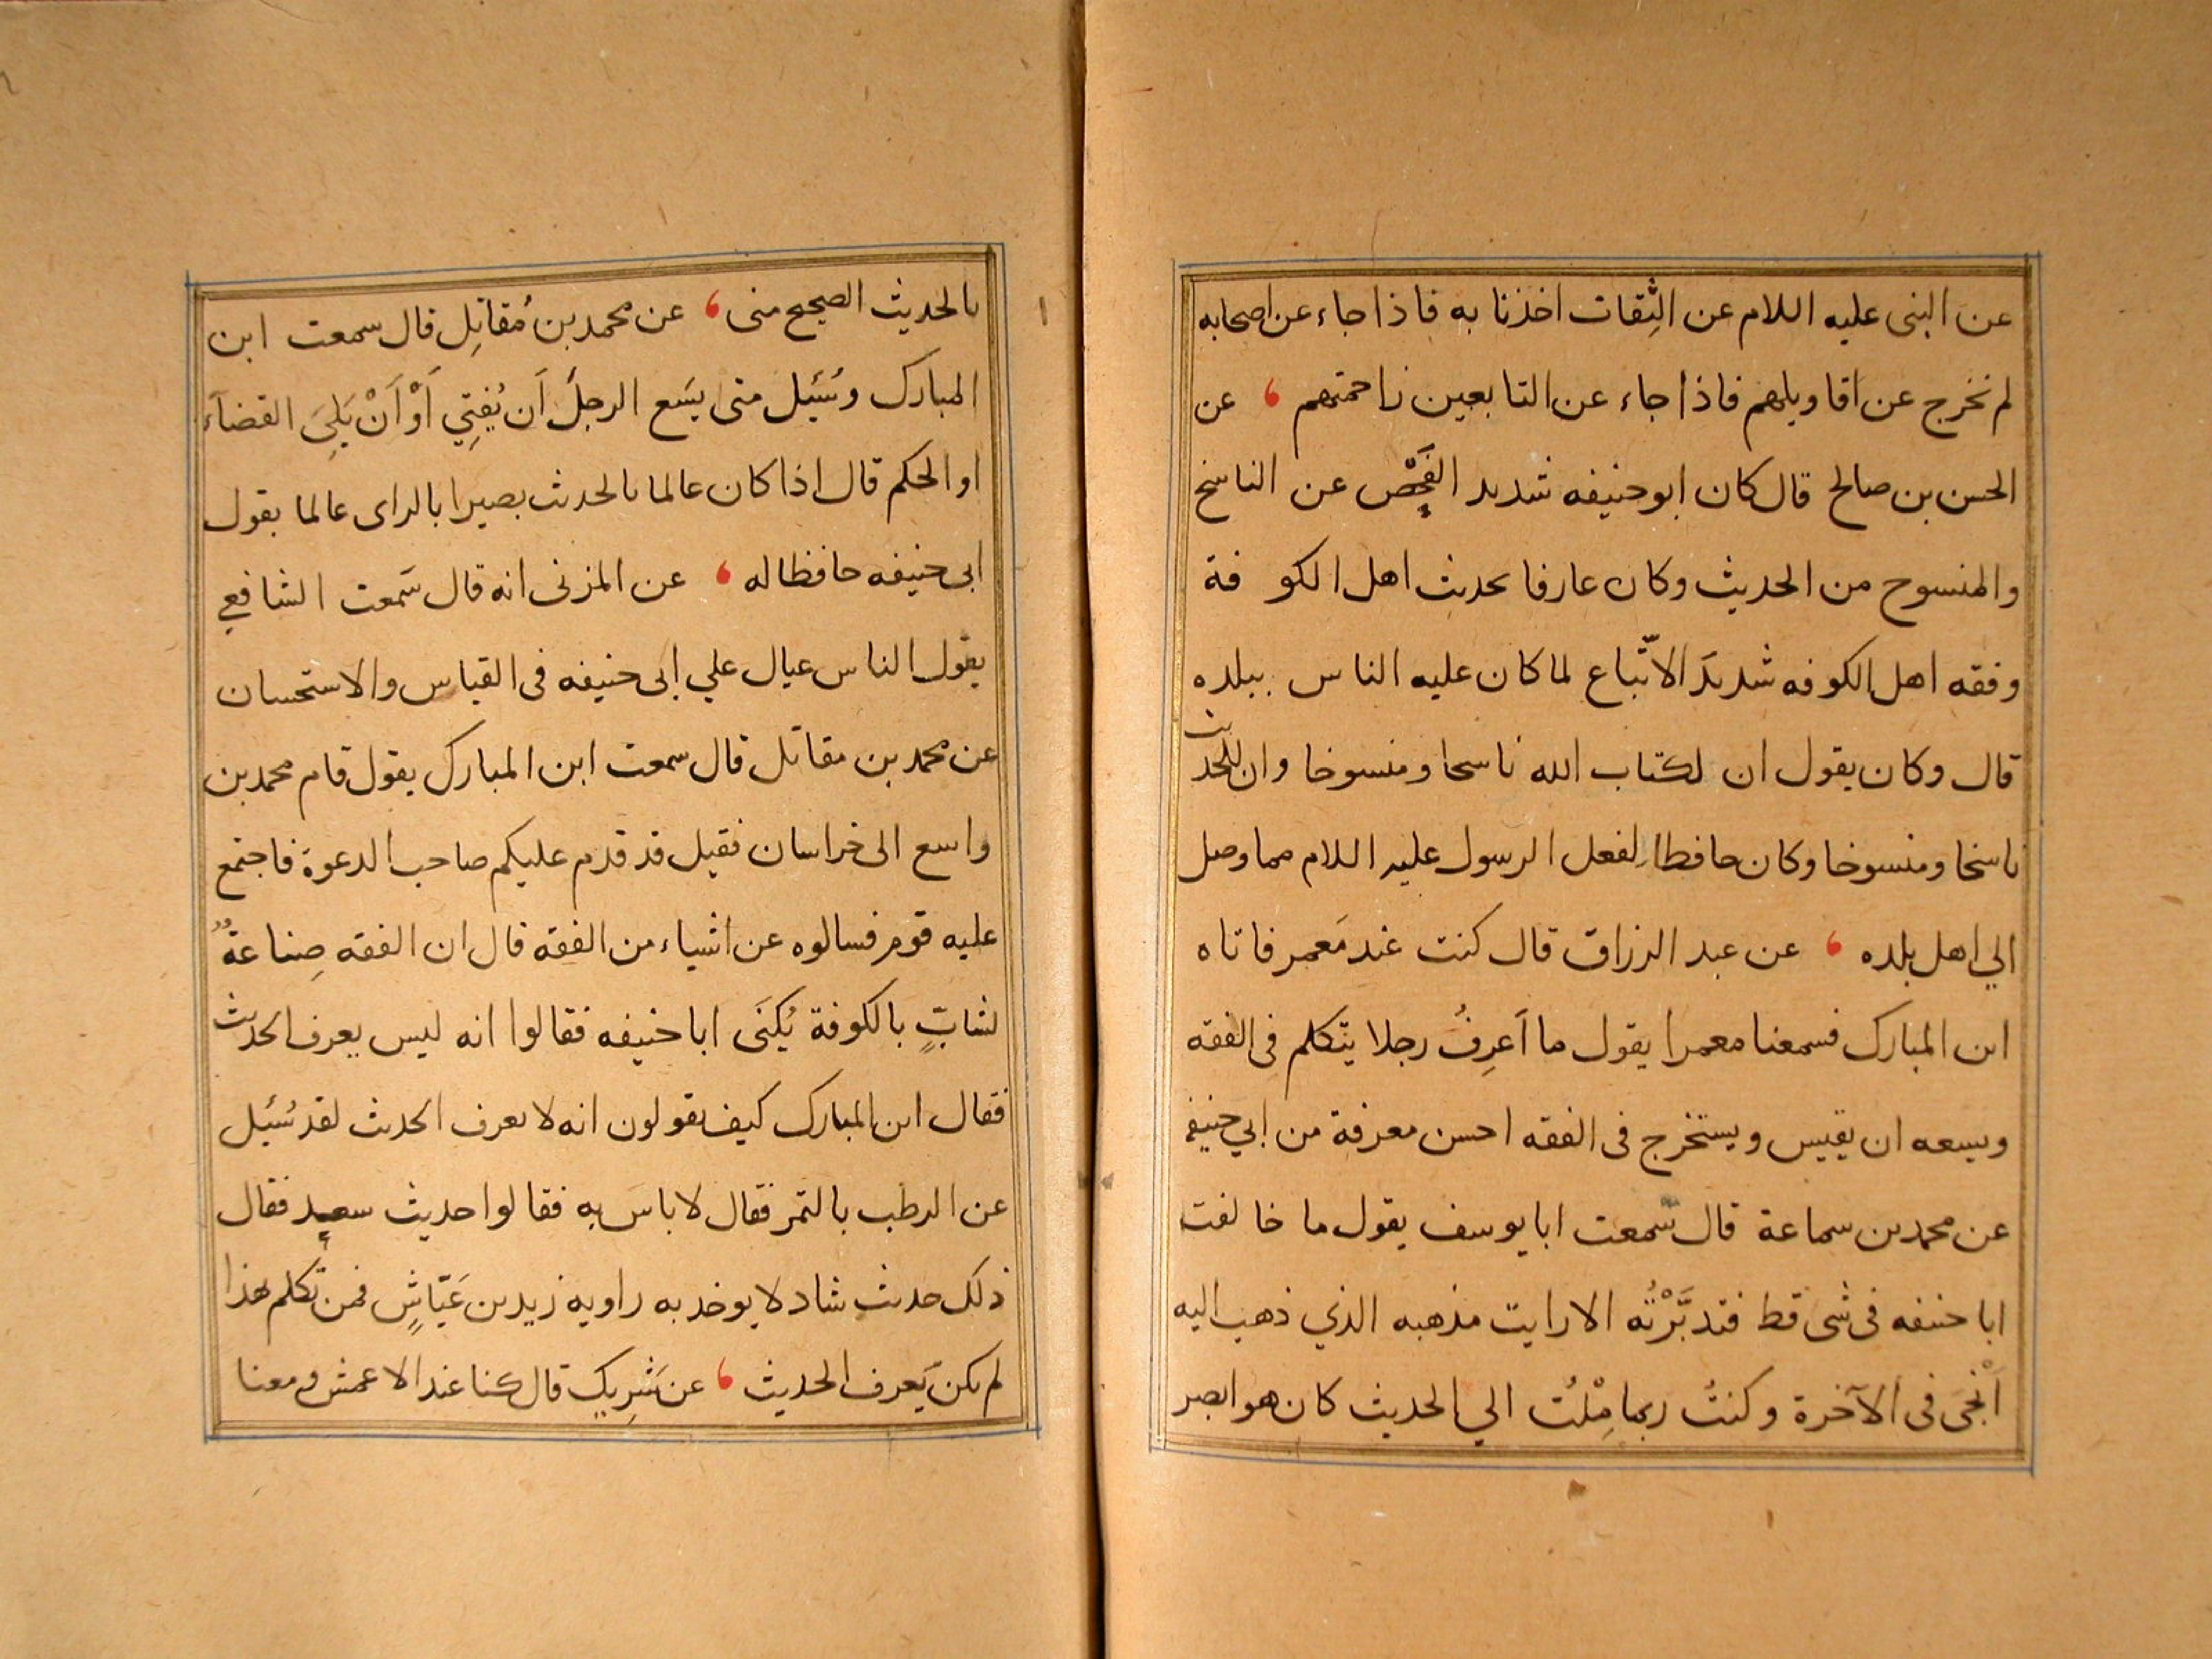 عن النبى عليه اللام عن الثِقات اخذنا به فاذا جاء عن اصحابه
لم نخرج عن اقاويلهم فاذا جاء عن التابعين زاحمتهم ، عن
الحسن بن صالح قال كان ابو حنيفه شديد الفَحْص عن الناسخ
والمنسوح من الحديث وكان عارفا بحديث اهل الكو فة
وفقه اهل الكوفه شديدَ الاتّباع لما كان عليه الناس ببلده
قال وكان يقول ان لكتاب الله ناسحا ومنسوخا وان للحديث
ناسخا ومنسوخا وكان حافطا لفعل الرسول عليه اللام مما وصل
الي اهل بلده ، عن عبد الرزاق قال كنت عند مَعمر فاتاه
ابن المبارك فسمعنا معمرا يقول ما اَعرِفُ رجلا يتّكلم فى الفقه
ويسعه ان يقيس ويستخرج فى الفقه احسن معرفة من ابي حنيفه
عن محمد بن سماعة قال سَمعت ابا يوسف يقول ما خالفت
ابا حنيفه فى شى قط فتدبَّرْتُه الا رايت مذهبه الذي ذهب اليه
اَنْجَى فى الآخرة وكنتُ ربما مِلْتُ الي الحديث كان هو ابصر
بالحديث الصحيح منى ، عن محمد بن مُقاتِل قال سمعت ابن
المبارك وسُئيل متى يسَع الرجلَ اَن يُفتِي اَوْ اَنْ يَلِيَ القضآءَ
او الحكم قال اذا كان عالما بالحديث بصيرا بالراى عالما بقول
ابى حنيفه حافظا له ، عن المزنى انه قال سَمعت الشافعي
يقول الناس عيال علي ابى حنيفه فى القياس والاستحسان
عن محمد بن مقاتل قال سمعت ابن المبارك يقول قام محمد بن
واسع الى خراسان فقيل قد قدم عليكم صاحب الدعوة فاجتمع
عليه قوم فسالوه عن اشياء من الفقه قال ان الفقه صِناعةٌ
لشابٍّ بالكوفة يُكنَى ابا حنيفه فقالوا انه ليس يعرف الحديث
فقال ابن المبارك كيف يقولون انه لا يعرف الحديث لقد سُئيل
عن الرطب بالتمر فقال لا باسَ به فقالوا حديث سعيد فقال
ذلك حديث شاد لا يوخد به راويه زيد بن عَيّاشٍ فمن تكلم بهذا
لم يكن يَعرف الحديث ، عن شَرِيكٍ قال كنا عند الاعمش ومعنا